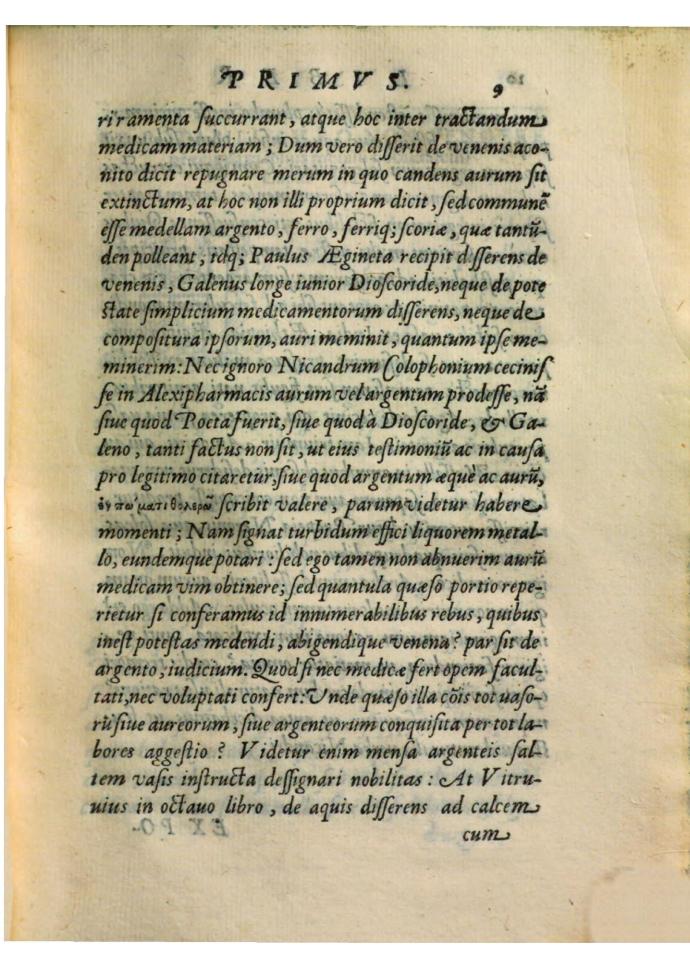 PRIMVS. 9
ri ramenta succurrant, atque hoc inter tractandum
medicam materiam; Dum vero disserit de venenis aco-
nito dicit repugnare merum in quo candens aurum sit
extinctum, at hoc non illi proprium dicit, sed communē
esse medellam argento, ferro, ferriq; scoriæ, quæ tantū-
den polleant, idq; Paulus Ægineta recipit disserens de
venenis, Galenus lorge iunior Dioscoride, neque de pote
state simplicium medicamentorum disserens, neque de
compositura ipsorum, auri meminit, quantum ipse me-
minerim: Nec ignoro Nicandrum Colophonium cecinis
se in Alexipharmacis aurum vel argentum prodesse, nā
siue quod Poeta fuerit, siue quod à Dioscoride, & Ga-
leno, tanti factus non sit, ut eius testimoniū ac in causa
pro legitimo citaretur, siue quod argentum æquè ac aurū,
scribit valere, parum videtur habere
momenti; Nam signat turbidum effici liquorem metal-
lo, eundemque potari: sed ego tamen non abnuerim aurū
medicam vim obtinere; sed quantula quæso portio repe-
rietur si conferamus id innumerabilibus rebus, quibus
inest potestas medendi, abigendique venena? par sit de
argento, iudicium. Quod si nec medicæ fert opem facul-
tati, nec voluptati confert: Unde quæso illa cōis tot uaso-
rū siue aureorum, siue argenteorum conquisita per tot la-
bores aggestio? Videtur enim mensa argenteis sal-
tem vasis instructa dessignari nobilitas: At Vitru-
uius in octauo libro, de aquis disserens ad calcem
cum